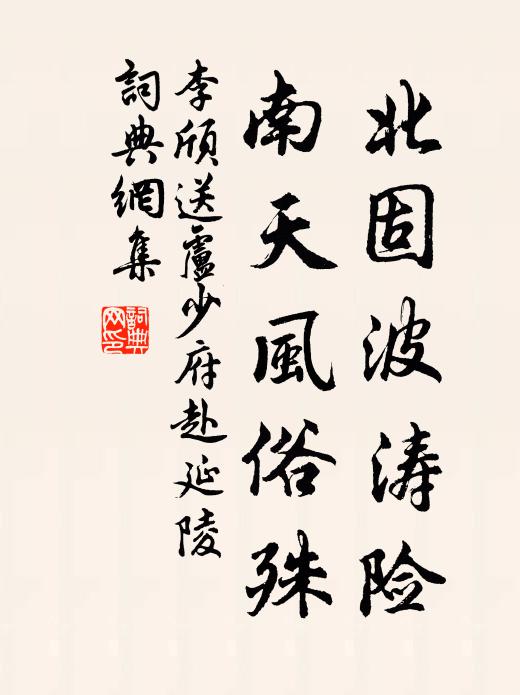 北固波涛险
南天風俗殊
李頎送盧少府赴延陵
詞典網集
詞典
网印